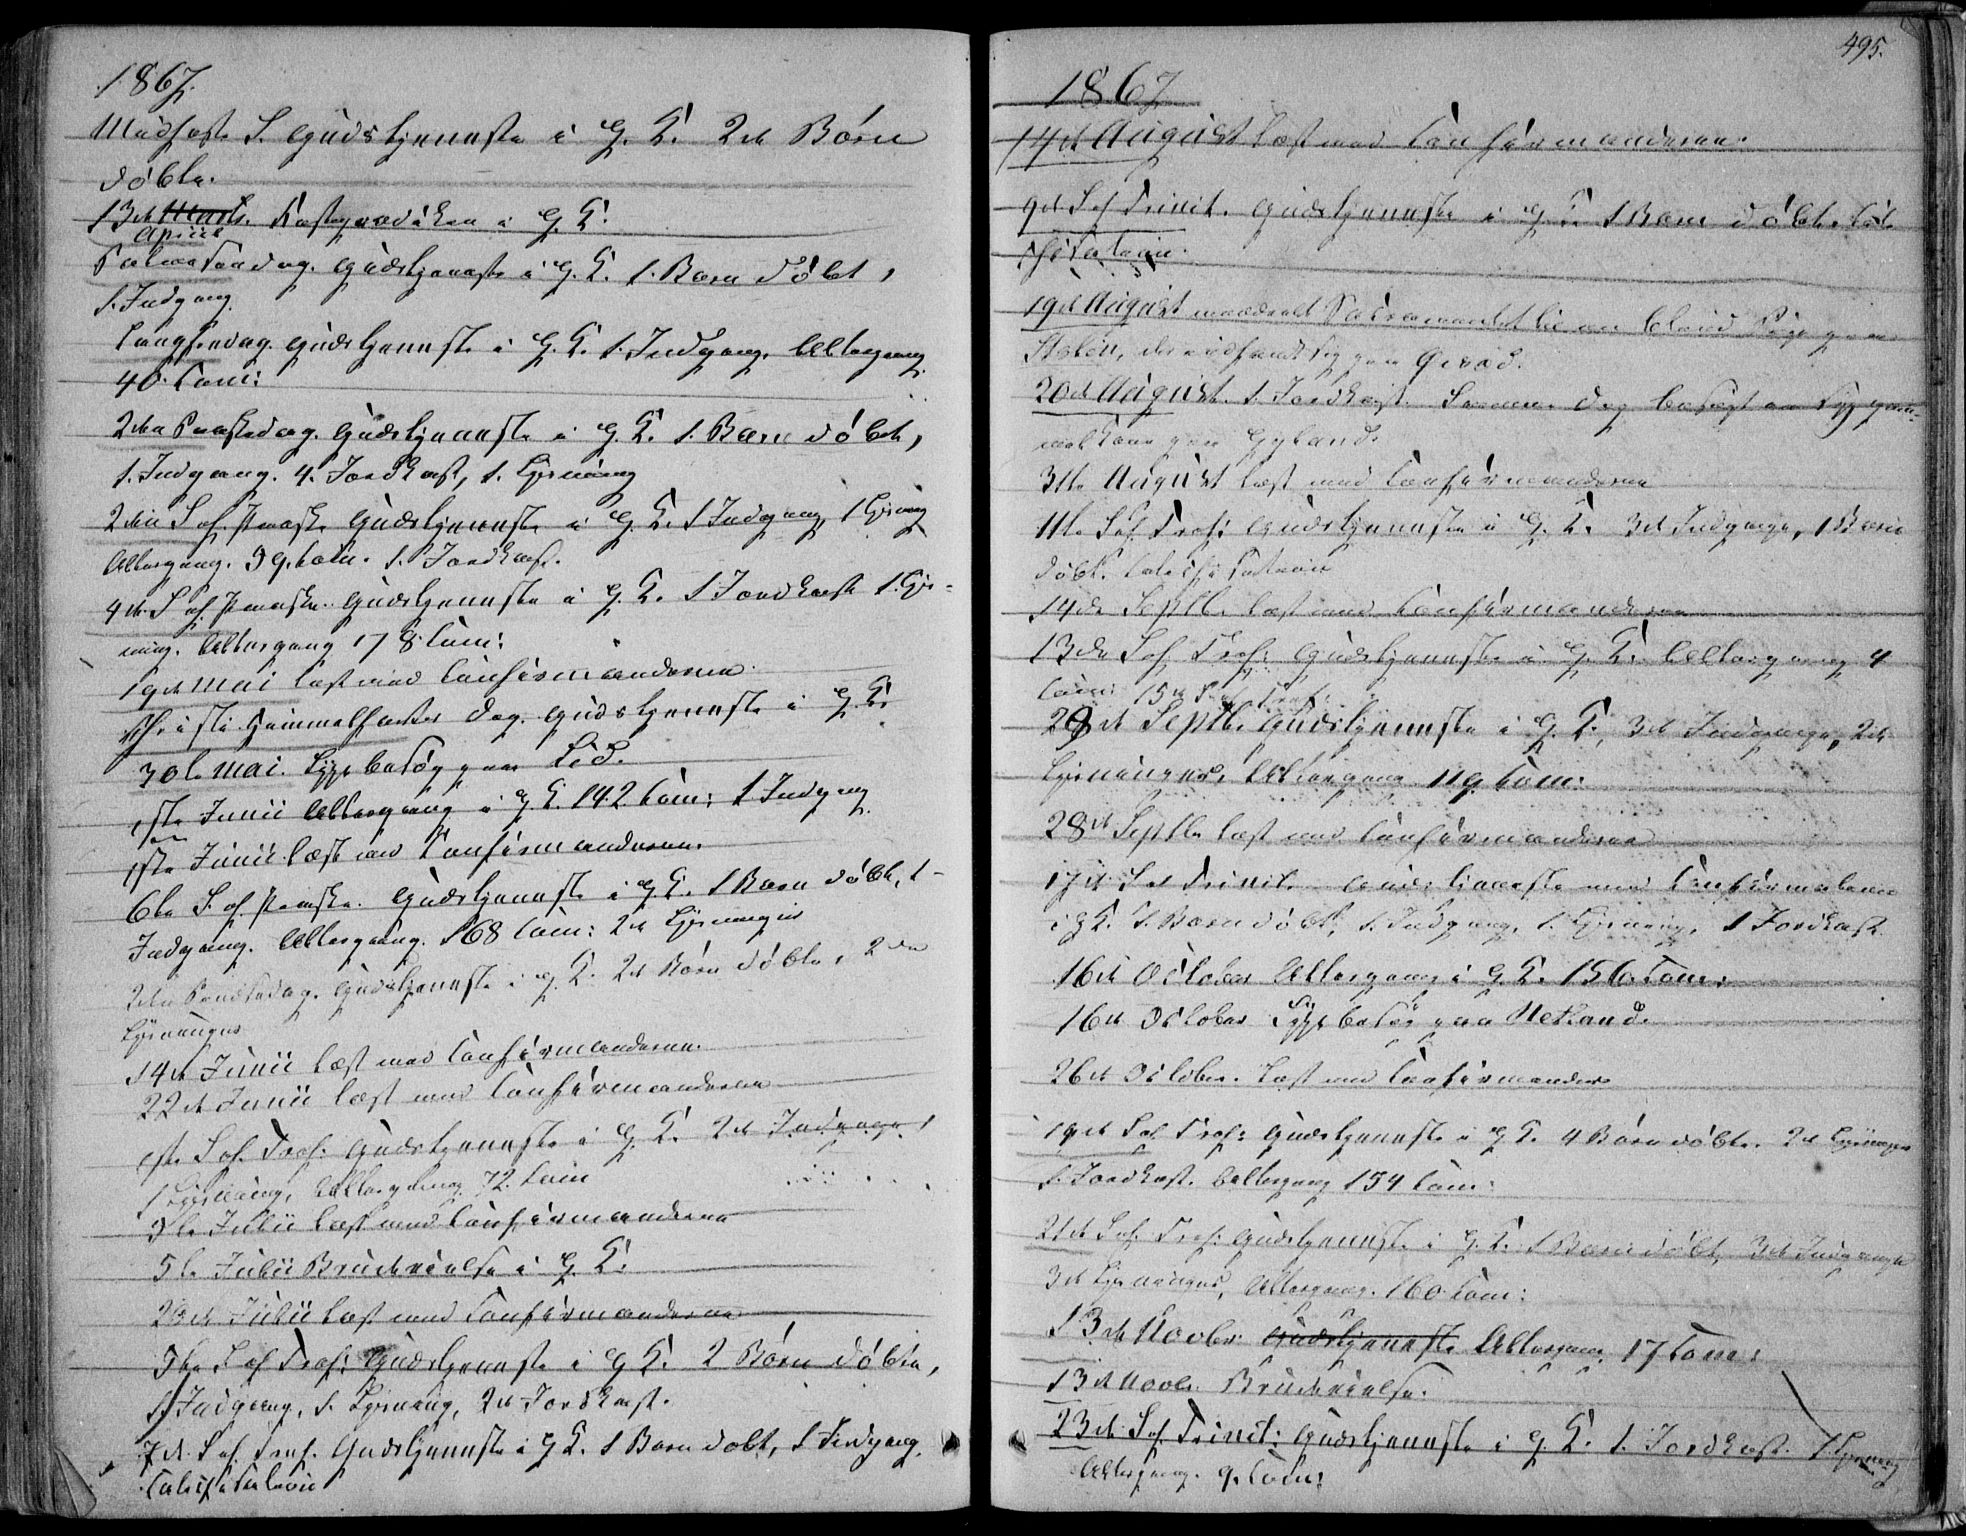 1867.
Midfaste S. Gudstjeneste i G. K. 2de Børn
døbte.
13de Marts. Fasteprædiken i G. K.
April
Palmesøndag. Gudstjeneste i G. K. 1. Barn døbt,
1. Indgang
Langfredag. Gudstjeneste i G. K. 1. Indgang. Altergang
40. Com:
2den Paaskedag. Gudstjeneste i G. K. 1. Barn døbt,
1. Indgang. 4. Jordkast, 1. Lysning
2den S. ef. Paaske Gudstjeneste i G. K. 1 Indgang, 1 Lysning
Altergang. 39. Com. 1. Jordkast.
4de S. ef. Paaske. Gudstjeneste i G. K. 1 Jordkast 1. Lys-
ning. Altergang 178 Com:
19de Mai læst med Confirmanderne.
Christi Himmelfarts Dag. Gudstjeneste i G. K.
30te Mai. Sygebesøg paa Lid.
1ste Junii Altergang i G. K. 142 Com: 1 Indgang
1ste Junii læst med Confirmanderne.
6te S. ef. Paaske. Gudstjeneste i G. K. 1 Barn døbt, 1-
Indgang. Altergang. 168 Com: 2de Lysninger
2den Pindsedag. Gudstjeneste i G. K. 2de Børn døbte, 2de
Lysninger
14de Junii læst med Confirmanderne.
22de Junii læst med Confirmanderne
1ste S. ef. Tref. Gudstjeneste i G. K. 2de Indgange,
1 Lysning, Altergang 72. Com
Julii læst med Confirmanderne
5te Julii Brudevielse i G. K.
26de Julii læst med Confirmanderne
S. ef. Tref: Gudstjeneste i G K. 2 Børn døbte,
1 Indgang, 1. Lysning, 2de Jordkast.
7de S. ef. Tref. Gudstjeneste i G K. 1 Barn døbt, 1 Indgang.
Catechisation
495.
1867
14de August læst med Confirmanderne.
9de S. ef Trinit. Gudstjeneste i G. K. 1 Barn døbt. Cate
chisation.
19de August meddeelt Sacramentet til en blind Pige paa
der opholdt sig paa
20de August. 1. Jordkast. Samme Dag besøgt en syg gam-
mel Kone paa Gyland.
31te August læst med Confirmanderne
11te S. ef. Tref: Gudstjeneste i G. K. 3de Indgange, 1 Barn
døbt. Catechisation
14de Septbr. læst med Confirmanderne
13de S. ef Tref: Gudstjeneste i G. K. Altergang 4
Com: 15de S. ef Tref:
29de Septbr. Gudstjeneste i G. K., 3de Indgange, 2de
Lysninger, Altergang 119 Com:
28de Septbr læst med Confirmanderne
17de S. ef Trinit. Gudstjeneste med Confirmation
i G K. 1. Barn døbt, 1. Indgang, 1. Lysning, 1 Jordkast.
16de October Altergang i G. K. 156 Com:
16de October Sygebesøg paa Netland.
26de October. læst med Confirmander
19de S. ef Tref: Gudstjeneste i G K. 4 Børn døbte. 2de Lysninger
1. Jordkast. Altergang 154 Com:
21de S. ef. Tref: Gudstjeneste i G. K. 1 Barn døbt, 3de Indgange
3de Lysninger, Altergang. 160 Com:
13de Novbr: Gudstjeneste Altergang. 17 Com:
13de Novbr. Brudevielse.
23de S. ef. Trinit: Gudstjeneste i G. K. 1. Jordkast. 1 Lysning
Altergang. 9. Com: